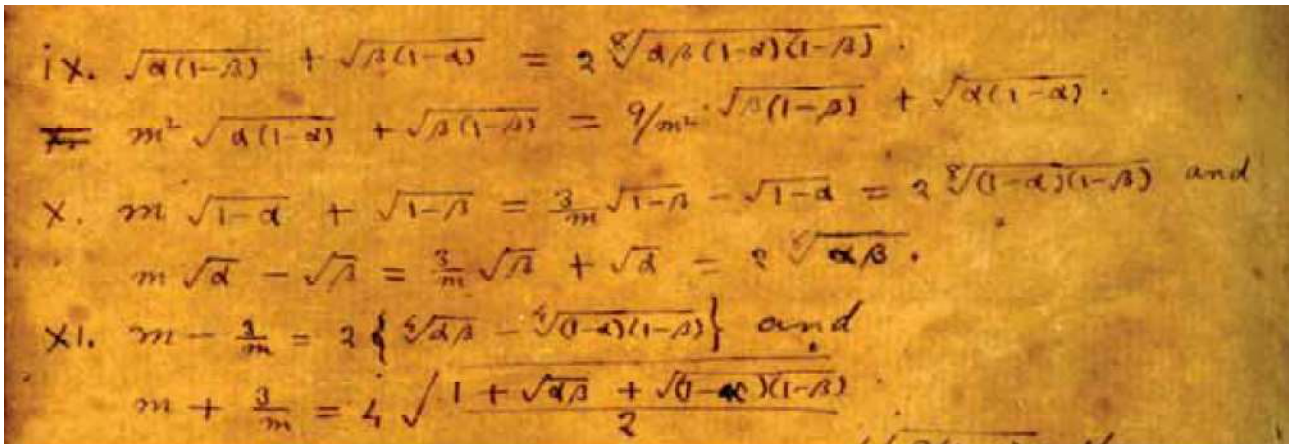 ix. √α(1-β) + √β(1-α) = 2 ⁸√αβ(1-α)(1-β) .
m² √α(1-α) + √β(1-β) = 9/m² · √β(1-β) + √α(1-α) .
x. m √1-α + √1-β = 3/m √1-β - √1-α = 2 ⁸√(1-α)(1-β) and
m √α - √β = 3/m √β + √α = 2 ⁸√αβ .
xi. m - 3/m = 2 { ⁴√αβ - ⁴√(1-α)(1-β) } and
m + 3/m = 4 √ (1 + √αβ + √(1-α)(1-β)) / 2